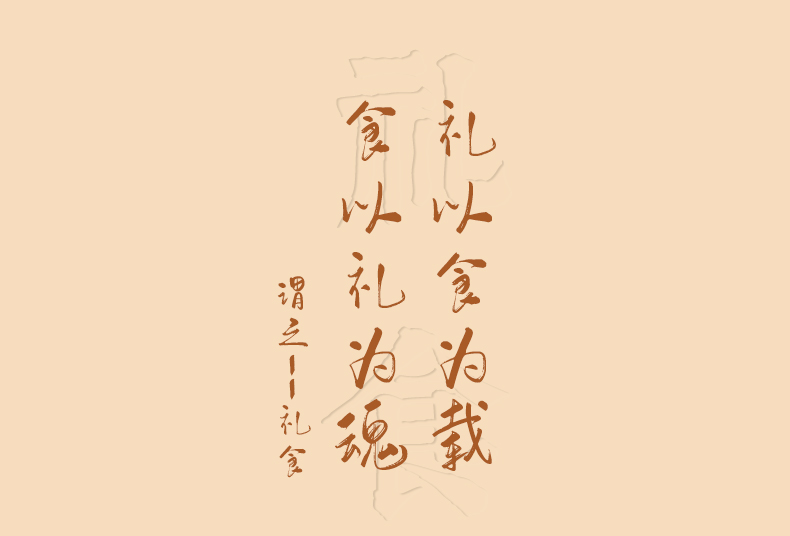 礼以食为载
食以礼为魂
谓之——礼食